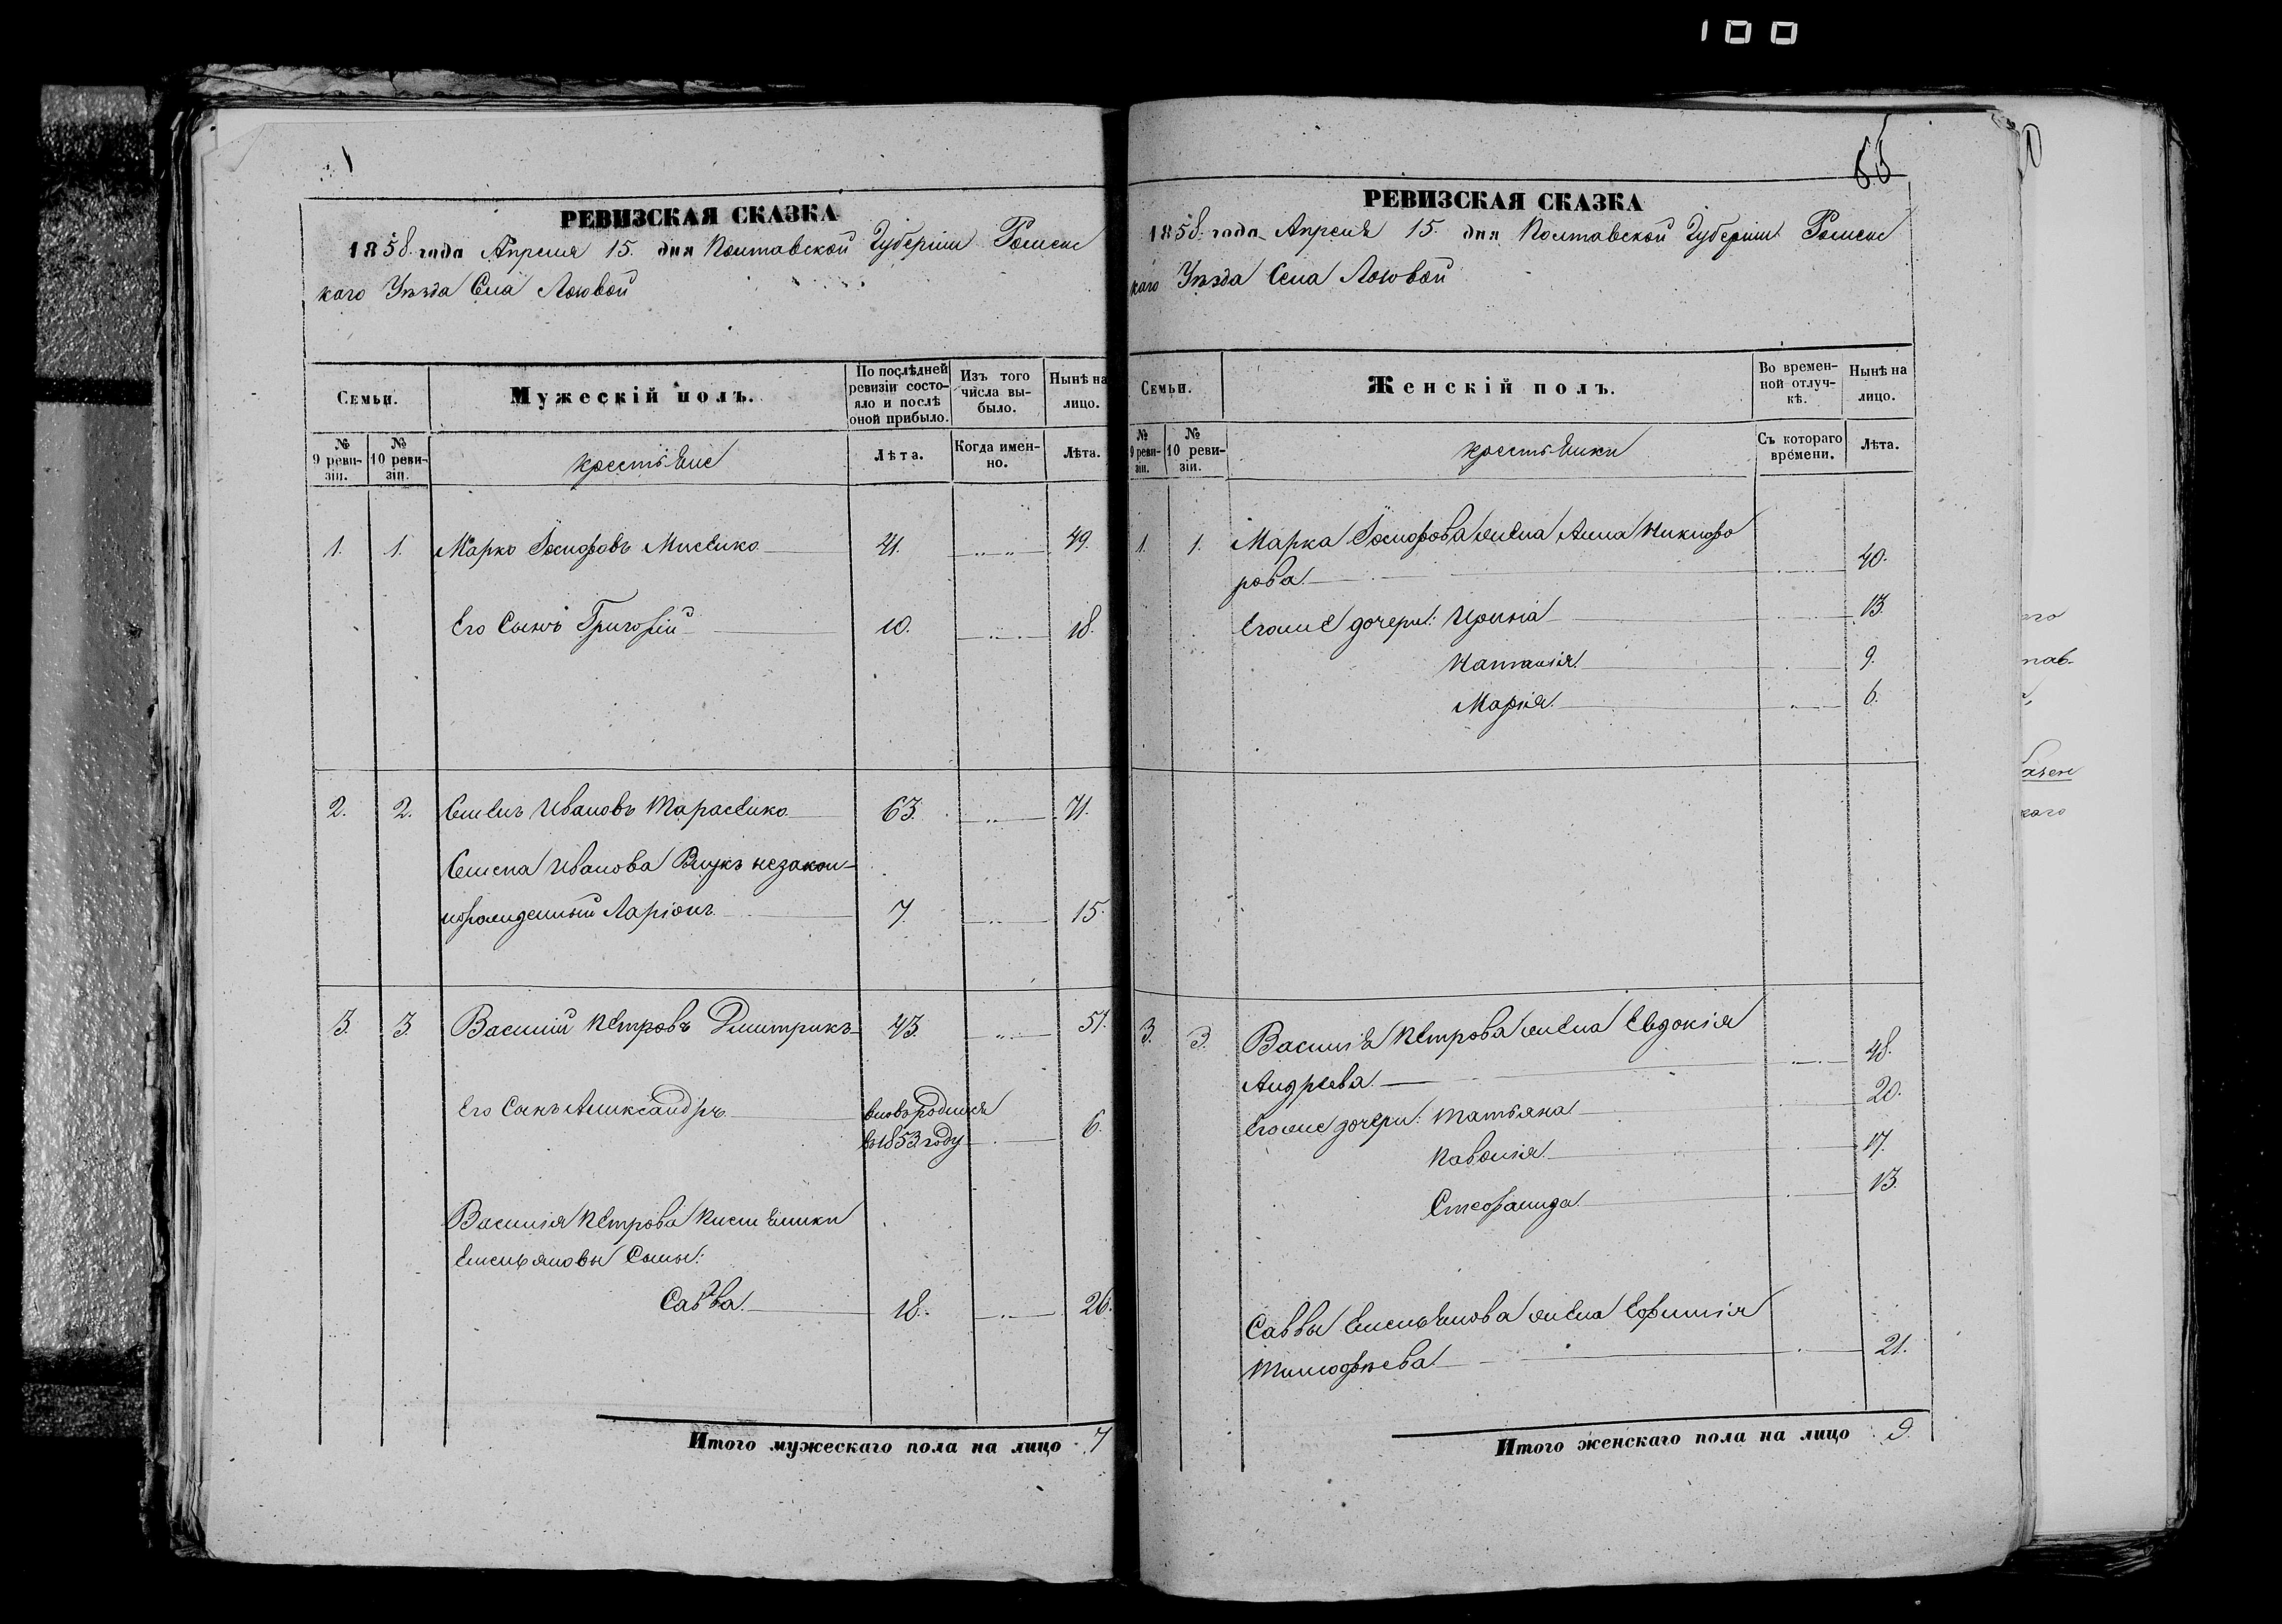 100
1
РЕВИЗСКАЯ СКАЗКА
1858. года Апреля 15. дня Полтавской Губерніи Роменс
каго Уѣзда Села Лозовой
Семьи.
Мужескій полъ.
По послѣдней
ревизіи состо-
яло и послѣ
оной прибыло.
Изъ того
числа вы-
было.
Нынѣ на
лицо.
№
9 реви-
зіи.
№
10 реви-
зіи.
крестьяне
Лѣта.
Когда имен-
но.
Лѣта.
1. 1. Марко Іосифовъ 41. 49.
Его Сынъ Григорій 10. 18.
2. 2. Семенъ Ивановъ Тарасенко 63. 71.
Семена Иванова Внукъ незакон-
норожденный Ларіонъ 7. 15.
3. 3. Василій Петровъ Дмитрикъ 43. 51.
Его Сынъ Александръ вновь родился
в 1853 году 6.
Василія Петрова племянники
Емельяновы Сыны:
Савва 18. 26.
Итого мужескаго пола на лицо 7
85
РЕВИЗСКАЯ СКАЗКА
1858. года Апреля 15. дня Полтавской Губерніи Роменс
каго Уѣзда Села Лозовой
Семьи.
Женскій полъ.
Во времен-
ной отлуч-
кѣ.
Нынѣ на
лицо.
№
9 реви-
зіи.
№
10 реви-
зіи.
крестьянки
Съ котораго
времени.
Лѣта.
1. 1. Марка Іосифова жена Анна Никифо
рова 40.
Егоже дочери: Ирина 13.
Наталія 9.
Марія 6.
3. 3. Василія Петрова жена Евдокія
Андреева 48.
Егоже дочери: Татьяна 20.
17.
Стефанида 13.
Саввы Емельянова жена Ефимія
Тимофѣева 21.
Итого женскаго пола на лицо 9.